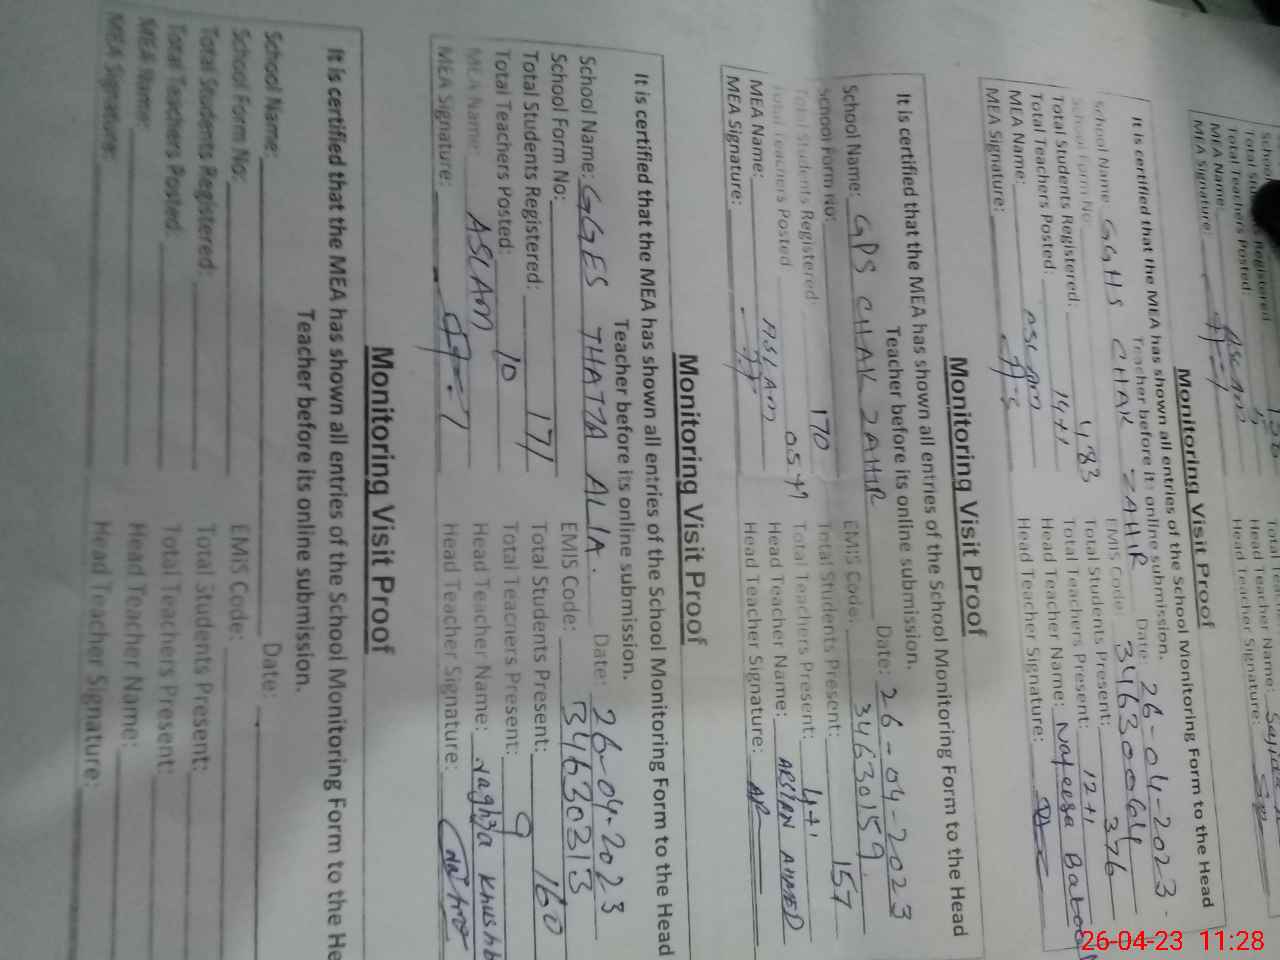 School
Registered 136
Total Teachers Posted:
MEA Name: Aslam
Head Teacher Name:
MEA Signature:
Head Teacher Signature:
Monitoring Visit Proof
It is certified that the MEA has shown all entries of the School Monitoring Form to the Head
Teacher before its online submission.
School Name GGHS CHAK ZAHIR Date: 26-04-2023
School Form No. EMIS Code: 34630064
Total Students Registered: 433 Total Students Present: 376
Total Teachers Posted: 14+1 Total Teachers Present: 12+1
MEA Name: ASLAM Head Teacher Name: Nafeesa Batool
MEA Signature: Head Teacher Signature:
Monitoring Visit Proof
It is certified that the MEA has shown all entries of the School Monitoring Form to the Head
Teacher before its online submission.
School Name: GPS CHAK ZAHIR Date: 26-04-2023
School Form No: EMIS Code: 34630159
Total Students Registered: 170 Total Students Present: 157
Total Teachers Posted Total Teachers Present: 4+1
MEA Name: ASLAM Head Teacher Name: ARSLAN AHMED
MEA Signature: Head Teacher Signature:
Monitoring Visit Proof
It is certified that the MEA has shown all entries of the School Monitoring Form to the Head
Teacher before its online submission.
School Name: GGES THATTA ALIA. Date: 26-04-2023
School Form No: EMIS Code: 34630313
Total Students Registered: 171 Total Students Present: 160
Total Teachers Posted: 10 Total Teachers Present: 9
MEA Name: ASLAM Head Teacher Name:
MEA Signature: Head Teacher Signature:
Monitoring Visit Proof
It is certified that the MEA has shown all entries of the School Monitoring Form to the He
Teacher before its online submission.
School Name: Date:
School Form No: EMIS Code:
Total Students Registered: Total Students Present:
Total Teachers Posted: Total Teachers Present:
MEA Name: Head Teacher Name:
MEA Signature: Head Teacher Signature:
26-04-23 11:28